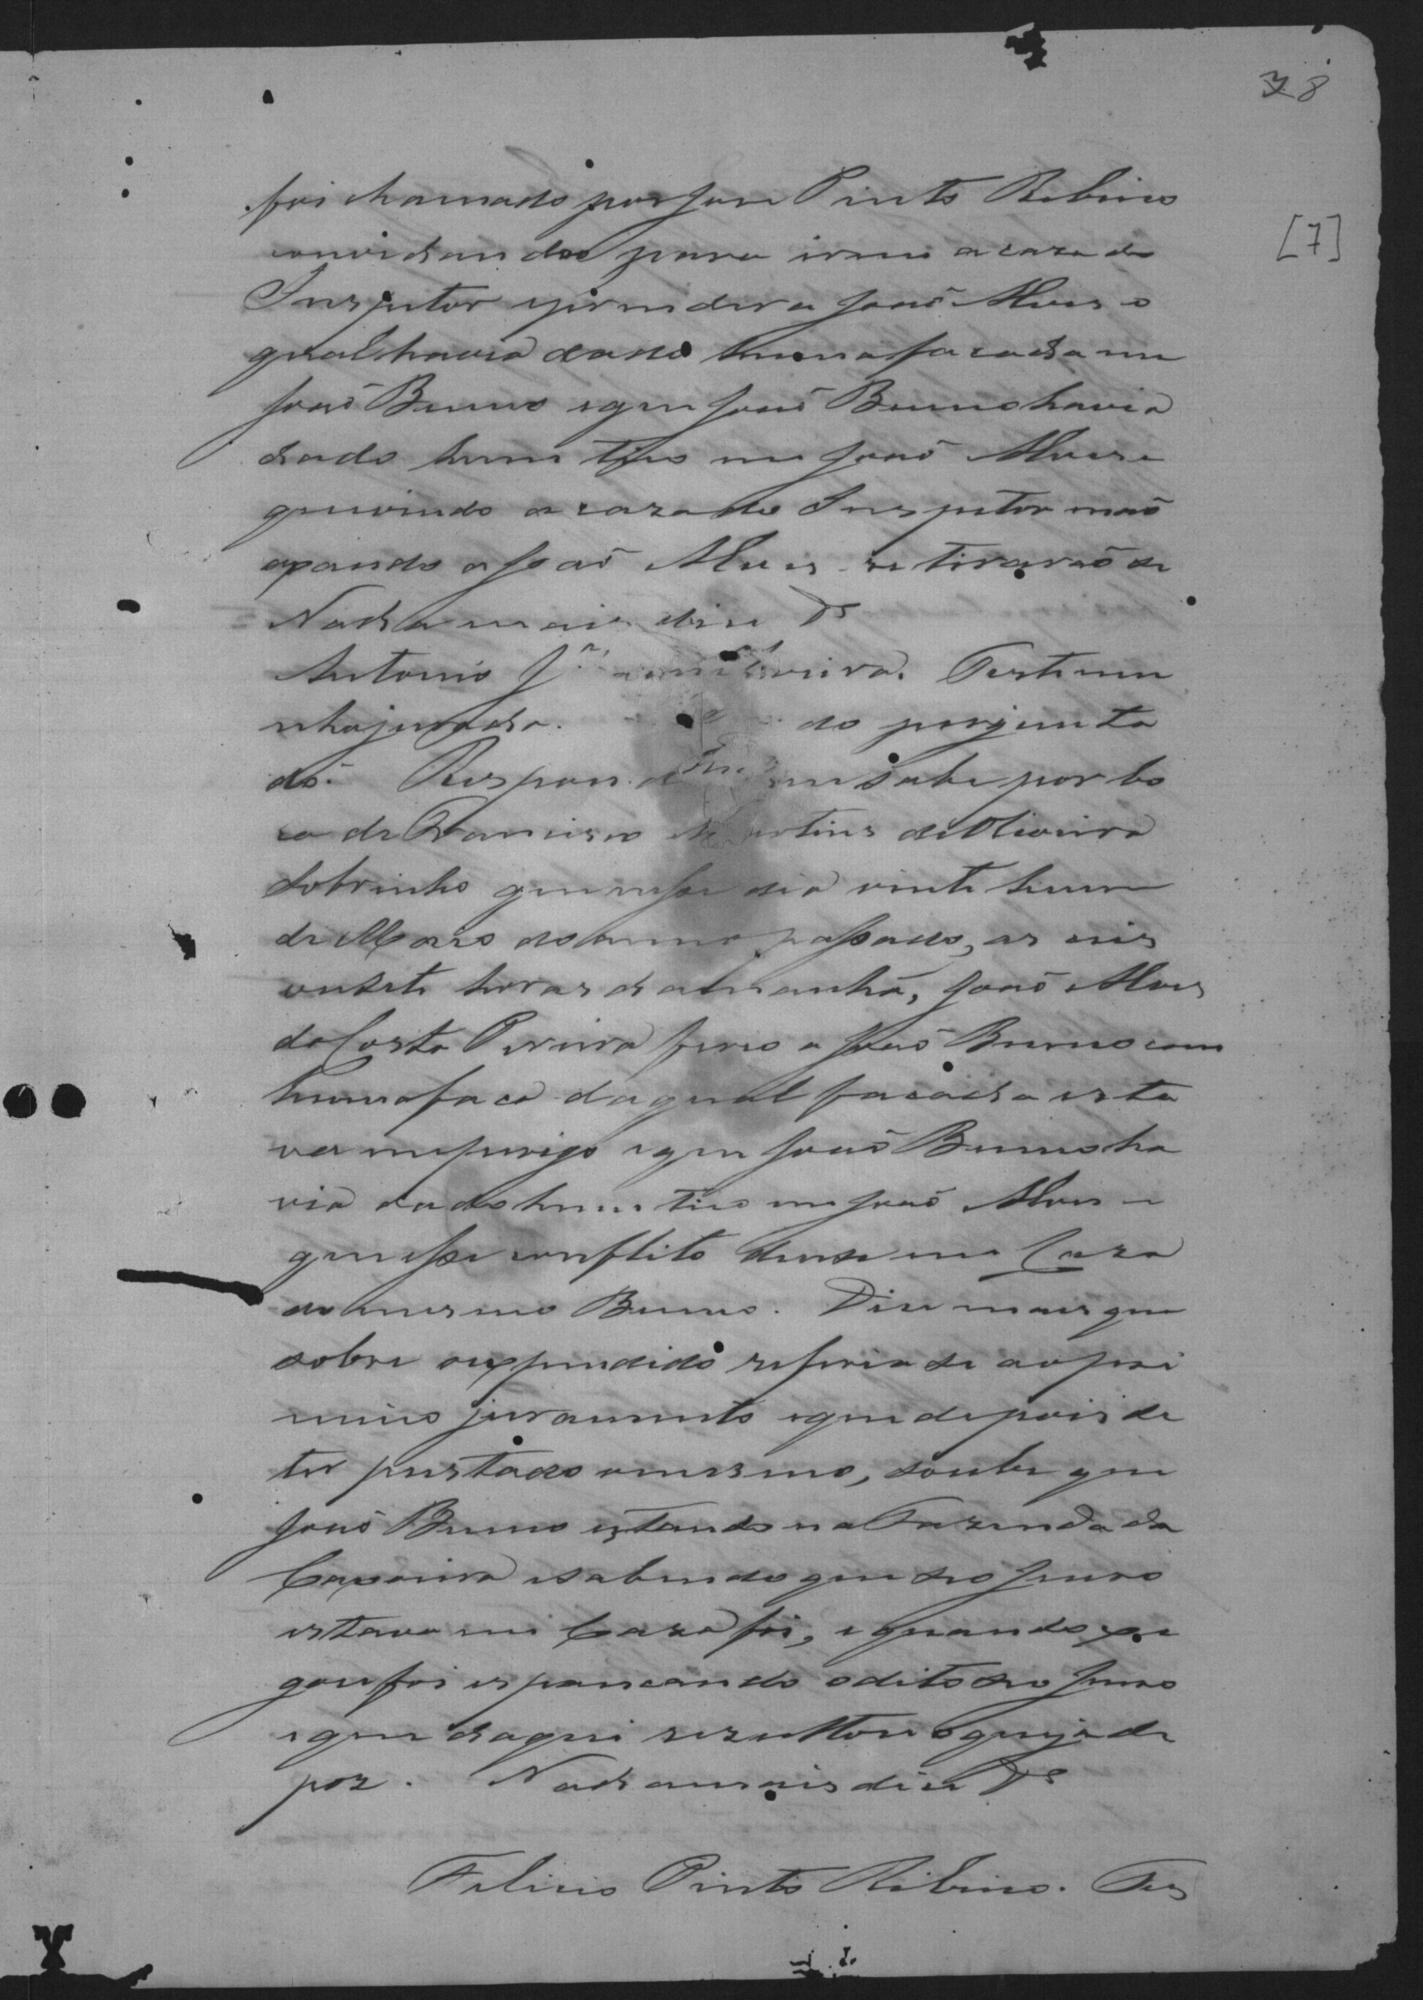 38
[7]
foi chamado por Jose Pinto Ribeiro
convidando para irem a caza do
Inspetor e prender a João Alves o
qual havia dado huma facada em
João Bueno e que João Bueno havia
dado hum tiro em João Alves e
que vindo a caza do Inspetor não
axando a João Alves se retirarão se
Nada mais disse Ds
Antonio Jm Oliveira. Testemu
nha jurada. do pergunta
do. Respondeu que sabe por bo
ca de Francisco Martins de Oliveira
Sobrinho que nesse dia vinte hum
de Março do anno passado, as seis
ou sete horas da manhã, João Alves
da Costa Pereira ferio a João Bueno com
huma faca da qual facada esta
va em perigo e que João Bueno ha
via dado hum tiro em João Alves e
que esse conflito deu se em Caza
do mesmo Bueno. Disse mais que
sobre o expendido referia se ao pri
meiro juramento e que depois de
ter prestado o mesmo, soube que
João Bueno estando na Fazenda da
Capoeira e sabendo que seo genro
estava em Caza foi, e quando xe
gou foi espancando o dito seo genro
e que daqui rezultou o que já de
poz. Nada mais disse Ds
Felicio Pinto Ribeiro. Tes